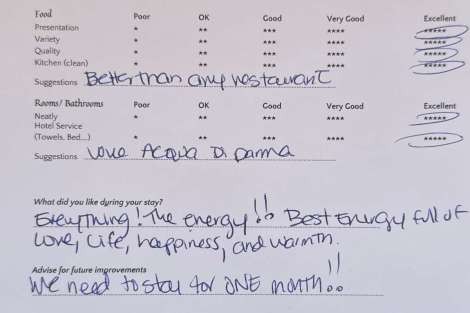 Food Poor OK Good Very Good Excellent
Presentation * ** *** **** *****
Variety * ** *** **** *****
Quality * ** *** **** *****
Kitchen (clean) * ** *** **** *****
Suggestions Better than any restaurant
Rooms/ Bathrooms Poor OK Good Very Good Excellent
Neatly * ** *** **** *****
Hotel Service
(Towels, Bed...) * ** *** **** *****
Suggestions Love Acqua Di parma
What did you like dyring your stay?
Everything! The energy!! Best Energy full of
Love, Life, happiness, and warmth.
Advise for future improvements
We need to stay for ONE month!!